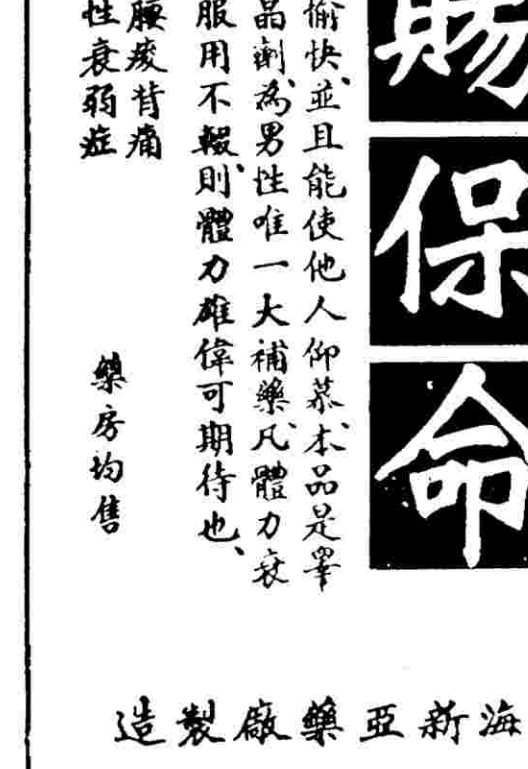 賜保命
愉快、並且能使他人仰慕、本品是睪
晶劑、為男性唯一大補藥、凡體力衰
服用不輟、則體力雄偉可期待也、
腰痠背痛
性衰弱症
藥房均售
海新亞藥廠製造